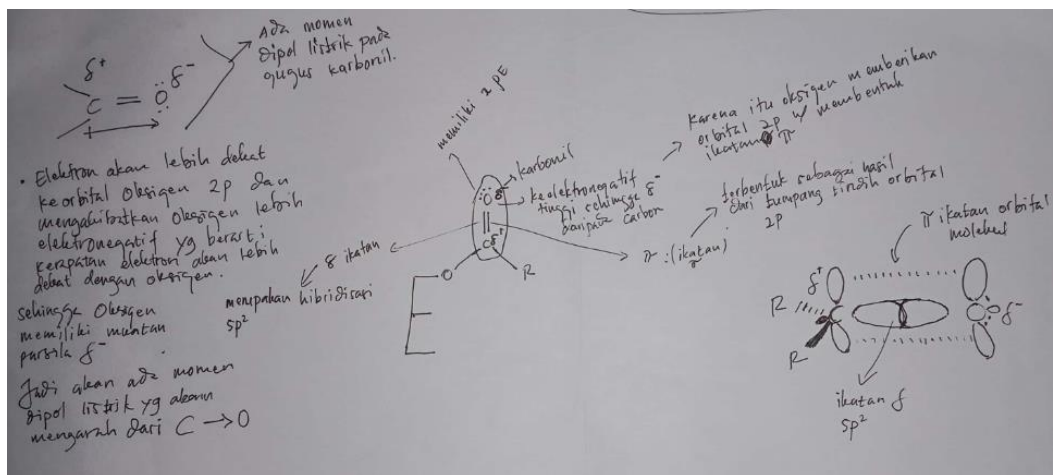 δ⁺
C = Ö δ⁻
Ada momen
dipol listrik pada
gugus karbonil.
• Elektron akan lebih dekat
ke orbital Oksigen 2p dan
mengakibatkan Oksigen lebih
elektronegatif yg berarti
kerapatan elektron akan lebih
dekat dengan oksigen.
sehingga Oksigen
memiliki muatan
δ⁻
Jadi akan ada momen
dipol listrik yg akan
mengarah dari C → O
memiliki 2 PE
karbonil
O δ⁻
keelektronegatif
tinggi sehingga δ⁻
daripada carbon
C δ⁺
O
R
δ ikatan
merupakan hibridisasi
sp²
π : (ikatan π)
Karena itu oksigen memberikan
orbital 2p membentuk
ikatan π
terbentuk sebagai hasil
dari tumpang tindih orbital
2p
π ikatan orbital
molekul
δ⁺
R
C
O
δ⁻
R
ikatan δ
sp²